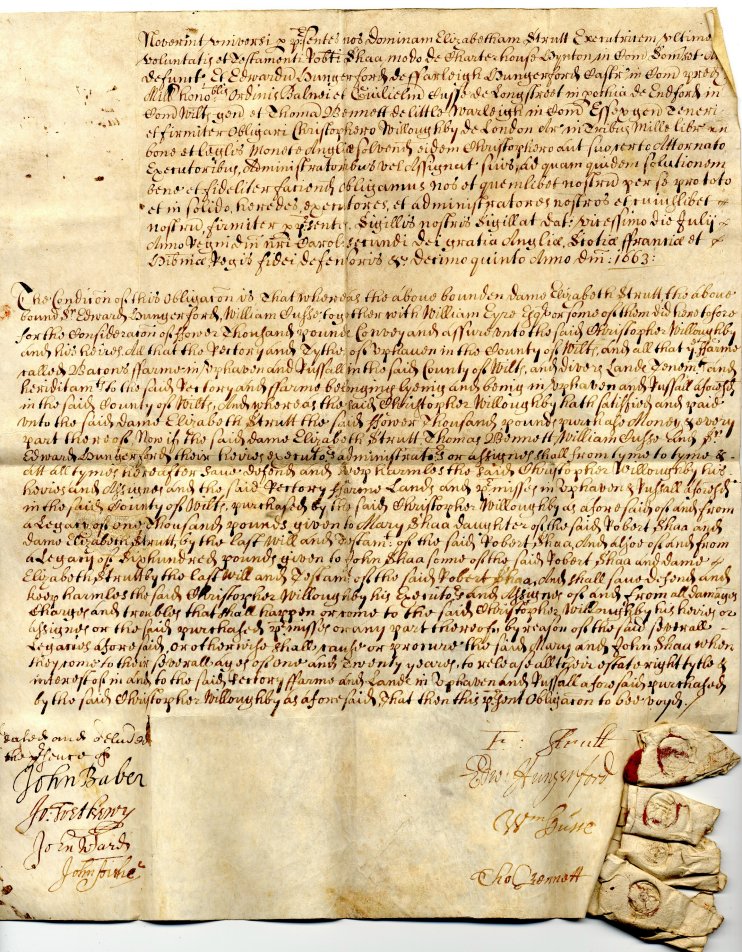 Noverint universi p p'sentes nos Dominam Elizabetham Strutt Executricem ultime
voluntatis et Testamenti Rob'ti Shaa modo de Charterhouse Hynton in Com Somset
defunct Et Edwardu Hungerford de ffarleigh Hungerford Castr in Com pred
Milit hono'blis Ordinis Balnei et Gulielm de Longstreet in pochia de Endford in
Com Wilts gen et Thomam Bennett de little Warleigh in Com Essex gen Teneri
et firmiter Obligari Christophero Willoughby de London Ar' in Tribus Mille libr
bone et leglis Monete Angliæ solvend eidem Christophero aut suo certo Attornato
Executoribus, Administratoribus vel Assignat suis, ad quam quidem solutionem
bene et fideliter faciend obligamus nos et quemlibet nostrum per se pro toto
et in solido, heredes, executores, et administratores nostros et cuiuslibet
nostrum firmiter p p'sentes. Sigillis nostris Sigillat Dat: vicessimo die Julii
Anno Regni d'ni n'ri Caroli secundi dei gratia Angliæ, Scotiæ ffranciæ et
Hiberniæ Regis fidei defensoris &c decimo quinto Anno Dni: 1663:
The Condicon of this Obligacon is That whereas the above bounden Dame Elizabeth Strutt the above
bound Sr Edward Hungerford, William together with William Eyre Esq or some of them did heretofore
for the Consideracon of ffower Thousand pounds Convey and assure unto the said Christopher Willoughby
and his heires, All that the Rectory and Tythe of Uphaven in the County of Wilts, and all that ye ffarme
called Bacons ffarme in Uphaven and Russall in the said County of Wilts, and divers Lands Tenemts and
heriditamts to the said Rectory and ffarme belonging lyeing and being in Uphaven and Russall aforesd
in the said County of Wilts, And whereas the said Christopher Willoughby hath satisfied and paid
unto the said dame Elizabeth Strutt the said ffower Thousand pounds purchase Money & every
part thereof. Now if the said dame Elizabeth Strutt, Thomas Bennett, William and Sr
Edward Hungerford their heires executors administrators or assignes shall from tyme to tyme &
att all tymes hereafter save defend and keep harmles the said Christopher Willoughby his
heires and Assignes and the said Rectory ffarme Lands and p'misses in Uphaven & Russall aforesd
in the said County of Wilts, purchased by the said Christopher Willoughby as aforesaid of and from
a Legacy of one Thousand pounds given to Mary Shaa daughter of the said Robert Shaa and
dame Elizabeth Strutt, by the last Will and Testamt. of the said Robert Shaa, And alsoe of and from
a Legacy of Six hundred pounds given to John Shaa sonne of the said Robert Shaa and dame
Elizabeth Strutt by the last Will and Testamt of the said Robert Shaa, And shall save defend and
keep harmles the said Christopher Willoughby his Executors and Assignes of and from all damages
Charges and troubles that shall happen or come to the said Christopher Willoughby his heires or
Assignes or the said purchased p'misses or any part thereof, by reason of the said severall
Legacies aforesaid, or otherwise shall cause or procure the said Mary and John Shaa when
they come to their severall ages of one and Twenty yeares, to release all their estate right tytle &
interest of in and to the said Rectory ffarme and Lands in Uphaven and Russall aforesaid purchased
by the said Christopher Willoughby as aforesaid That then this p'sent Obligacon to bee voyd.
Sealed and delivered
in the p'sence of
John Baber
John Ward
E: Strutt
Edw: Hungerford
Wm
Tho Bennett